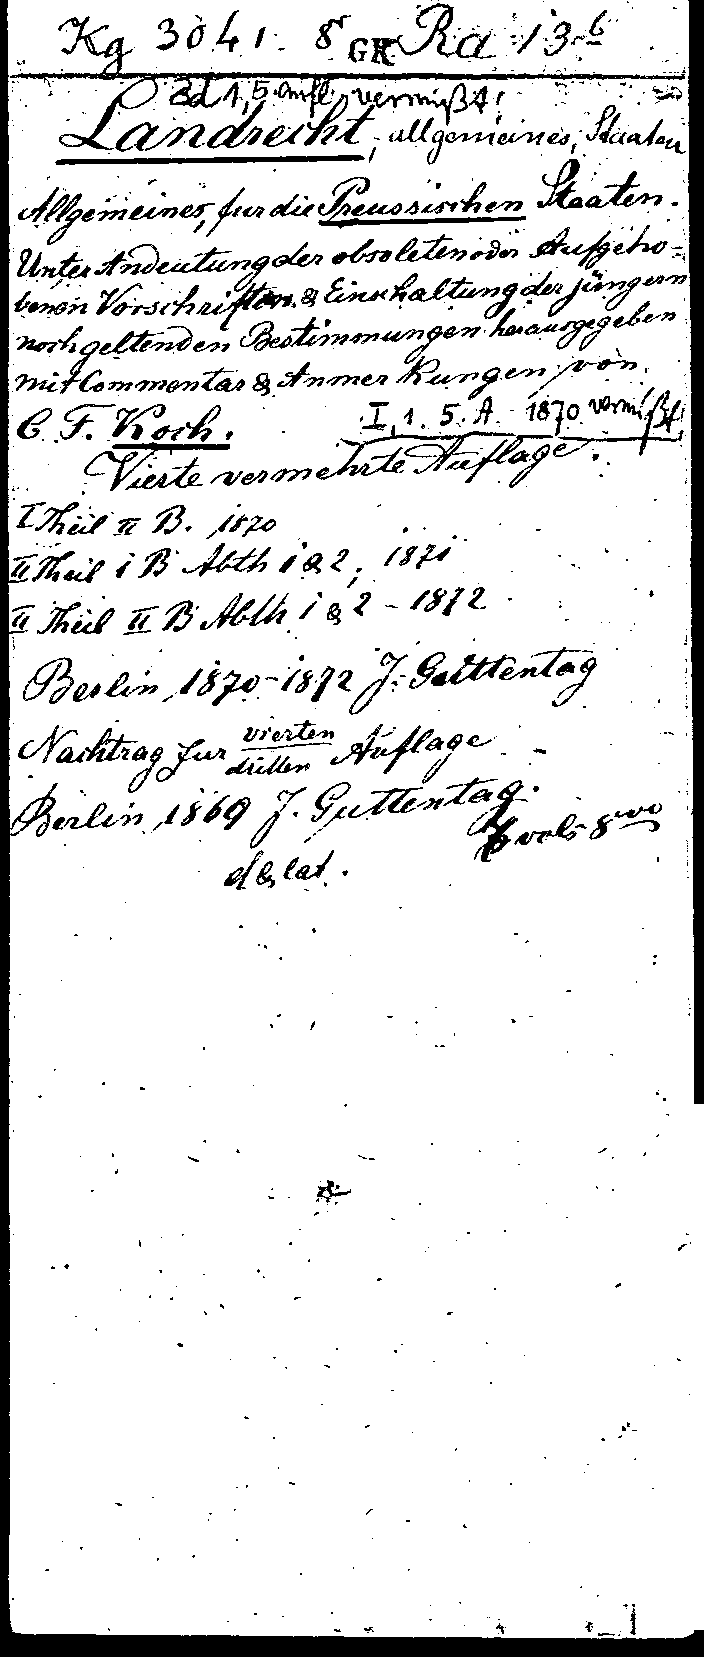 Kg 3041. 8° GK Ra 13 6
Bd 1, 5. Aufl. vermißt!
Landrecht, allgemeines, Staaten
Allgemeines, fur die Preussischen Staaten.
Unter Andeutung der obsoleten oder Aufgeho-
benen Vorschriften & Einschaltung der jüngern
noch geltenden Bestimmungen herausgegeben
mit Commentar & Anmerkungen von
C. F. Koch. I, 1. 5. A. 1870 vermißt,
Vierte vermehrte Auflage.
I Theil II B. 1870
II Theil I B Abth 1 & 2, 1871
II Theil II B Abth 1 & 2 - 1872
Berlin, 1870-1872 J. Guttentag
Nachtrag fur vierten dritten Auflage
Berlin, 1869 J. Guttentag.
vols 8vo